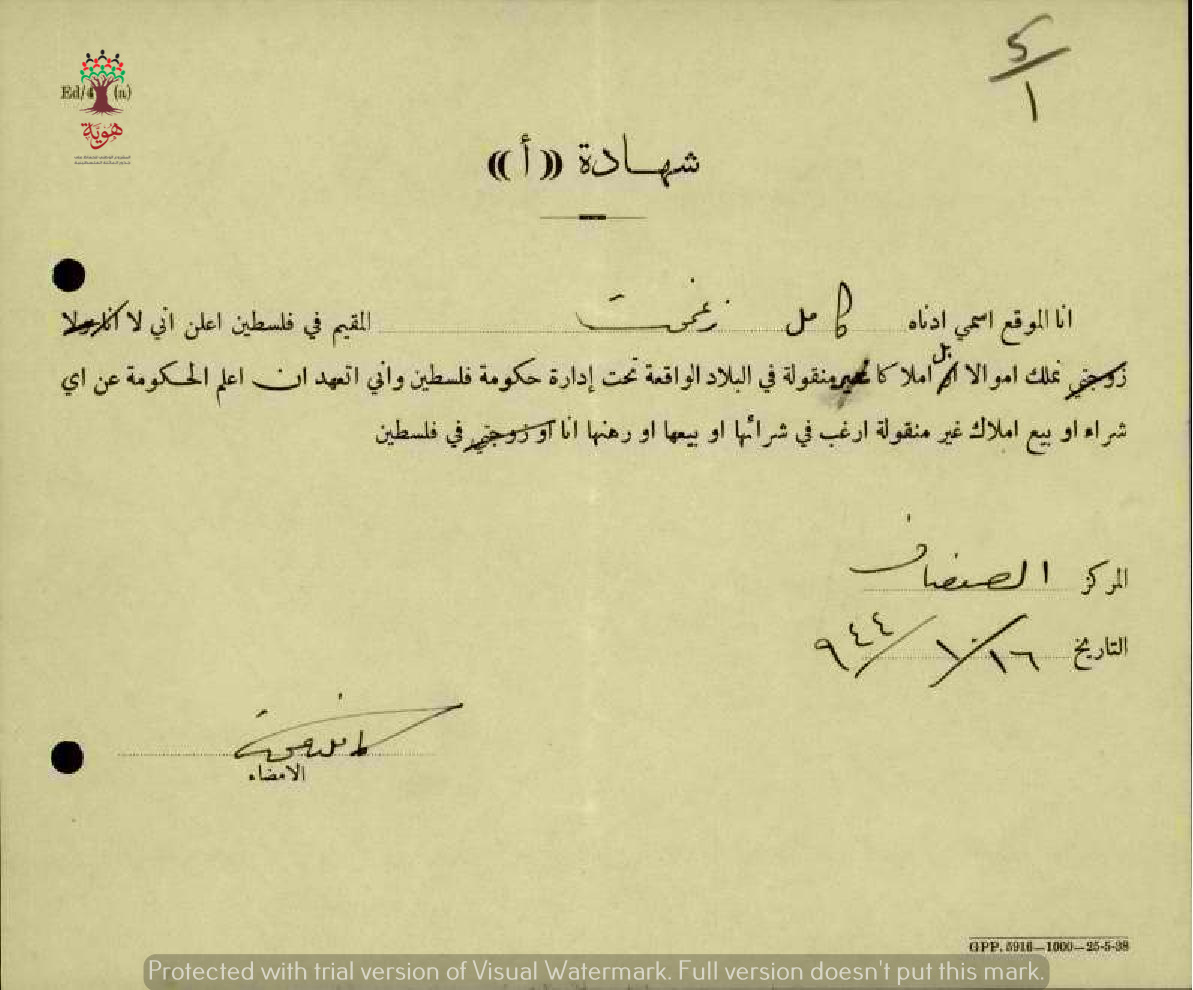 ٥/١
Ed/4 (a)
هُوِيَّة
شهــادة ((أ))
انا الموقع اسمي ادناه كامل زغموت المقيم في فلسطين اعلن اني لا انا ولا
زوجتي نملك اموالا بل املاكا غير منقولة في البلاد الواقعة تحت إدارة حكومة فلسطين واني اتعهد ان اعلم الحكومة عن اي
شراء او بيع املاك غير منقولة ارغب في شرائها او بيعها او رهنها انا او زوجتي في فلسطين
المركز الصفصاف
التاريخ ١٦/١٠/٩٤٤
الامضاء
GPP. 5916—1000—25-5-38
Protected with trial version of Visual Watermark. Full version doesn't put this mark.